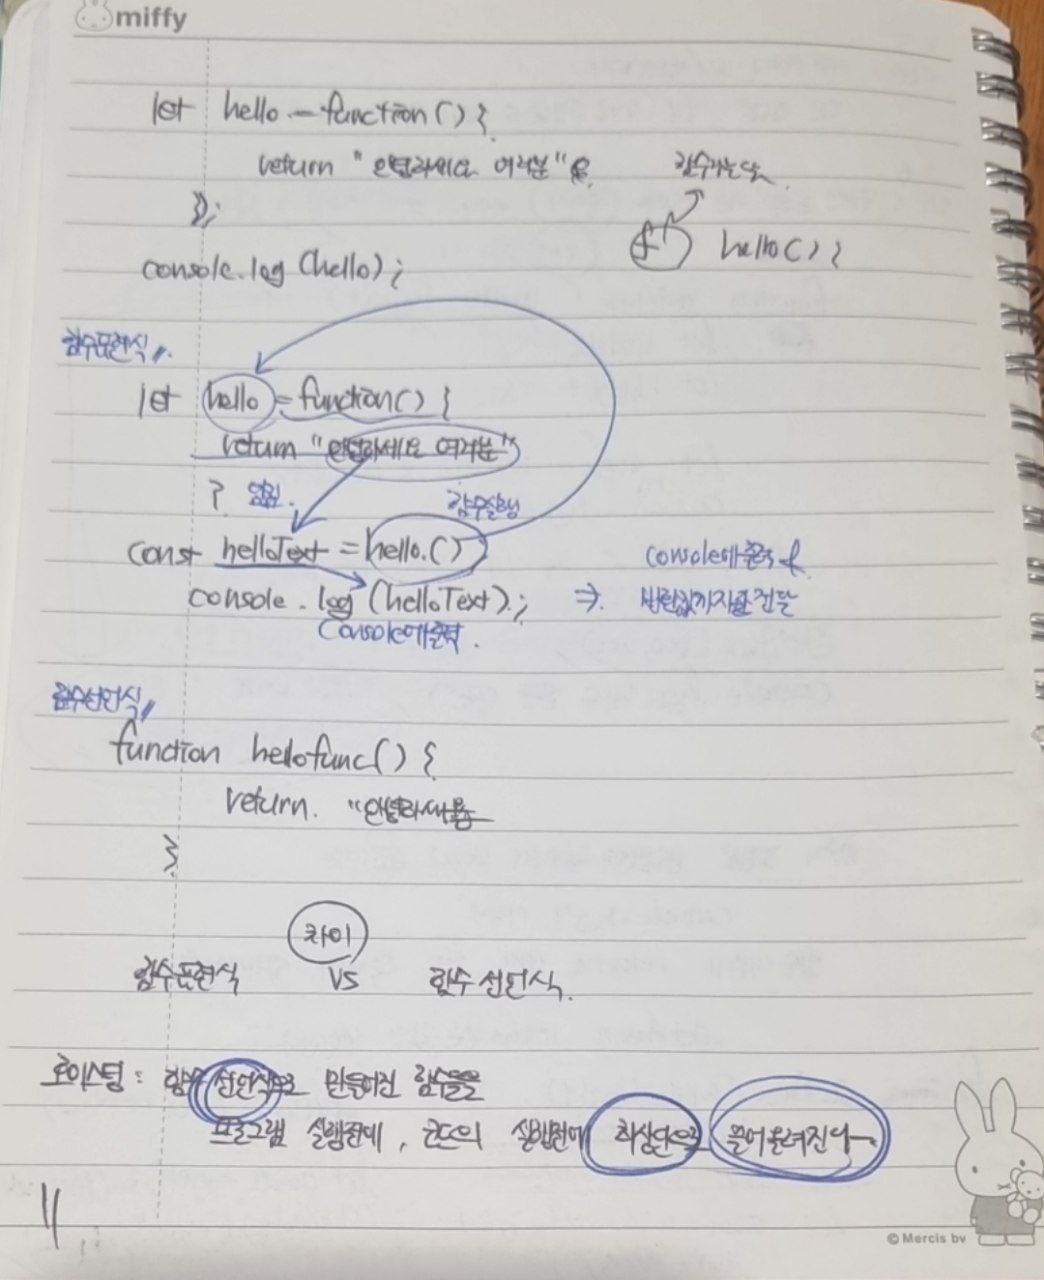 miffy
let hello = function() {
return "안녕하세요 여러분"
함수라는 뜻
};
f hello() {
console.log(hello);
함수표현식
let hello = function() {
return "안녕하세요 여러분"
}
함수실행
const helloText = hello.()
console에 출력
console.log(helloText); ⇒ 반환값까지 전달
console에 출력
함수선언식
function hellofunc() {
return. "안녕하세요
}
차이
함수표현식 VS 함수 선언식.
호이스팅 : 함수 선언식으로 만들어진 함수들을
프로그램 실행전에, 코드의 실행전에 최상단으로 끌어 올려진다
© Mercis bv